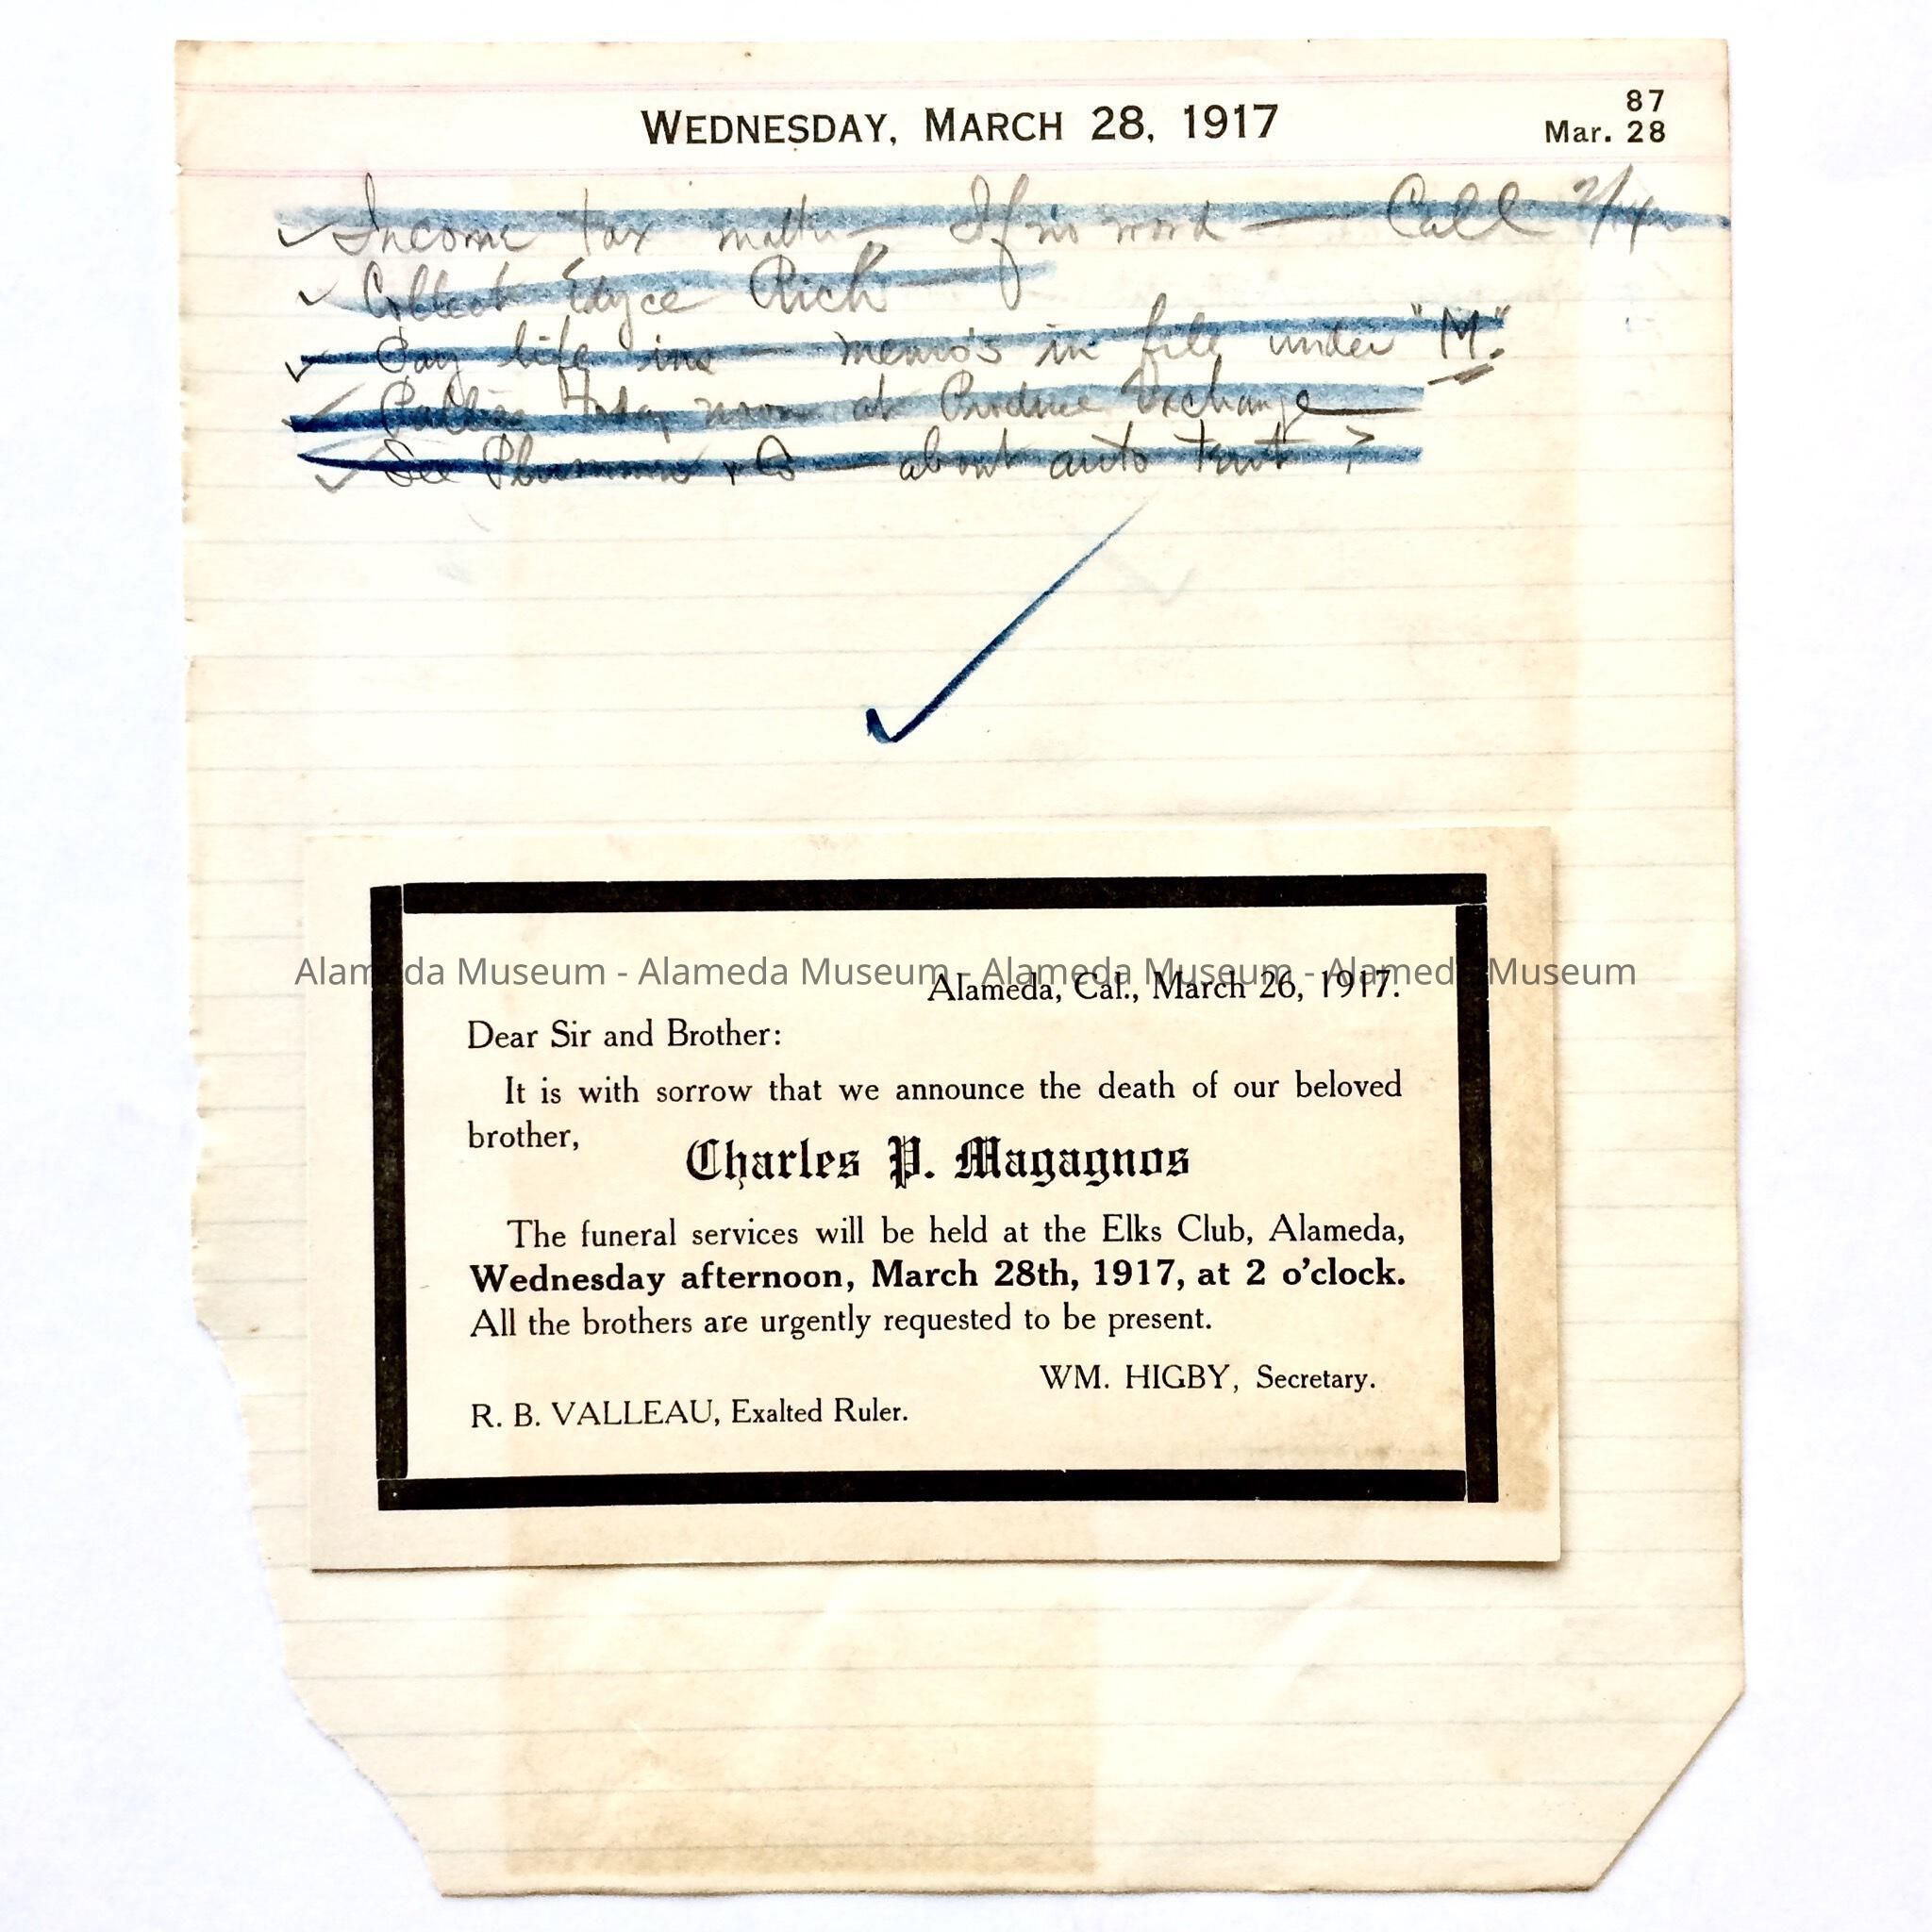 WEDNESDAY, MARCH 28, 1917
87
Mar. 28
Income tax matter — If no word — Call
Collect Edyce Rich
Pay life ins — memo's in file under "M."
noon at Produce Exchange
See Plummer & Co — about auto ?
Alameda Museum - Alameda Museum - Alameda Museum - Alameda Museum
Alameda, Cal., March 26, 1917.
Dear Sir and Brother:
It is with sorrow that we announce the death of our beloved
brother,
Charles P. Magagnos
The funeral services will be held at the Elks Club, Alameda,
Wednesday afternoon, March 28th, 1917, at 2 o'clock.
All the brothers are urgently requested to be present.
WM. HIGBY, Secretary.
R. B. VALLEAU, Exalted Ruler.